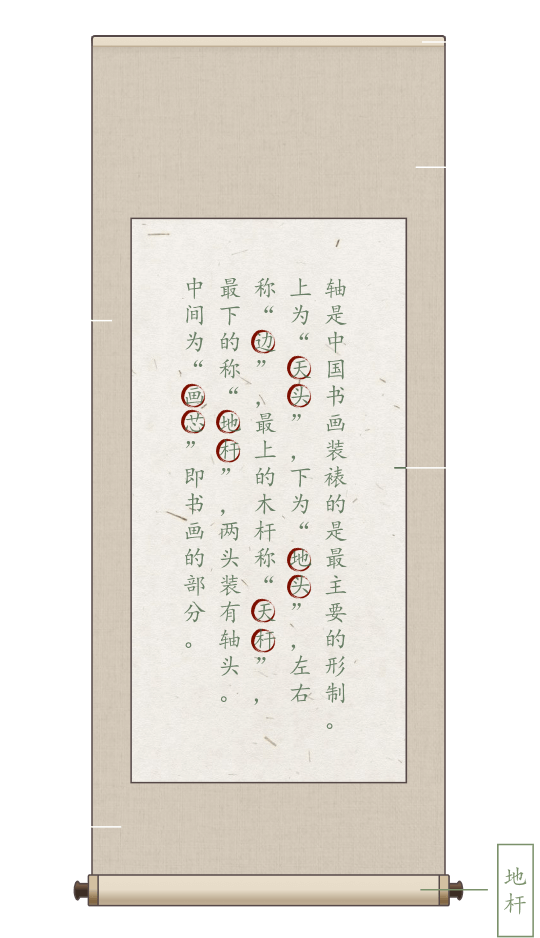 轴是中国书画装裱的是最主要的形制。
上为“天头”，下为“地头”，左右
称“边”，最上的木杆称“天杆”，
最下的称“地杆”，两头装有轴头。
中间为“画芯”即书画的部分。
地杆